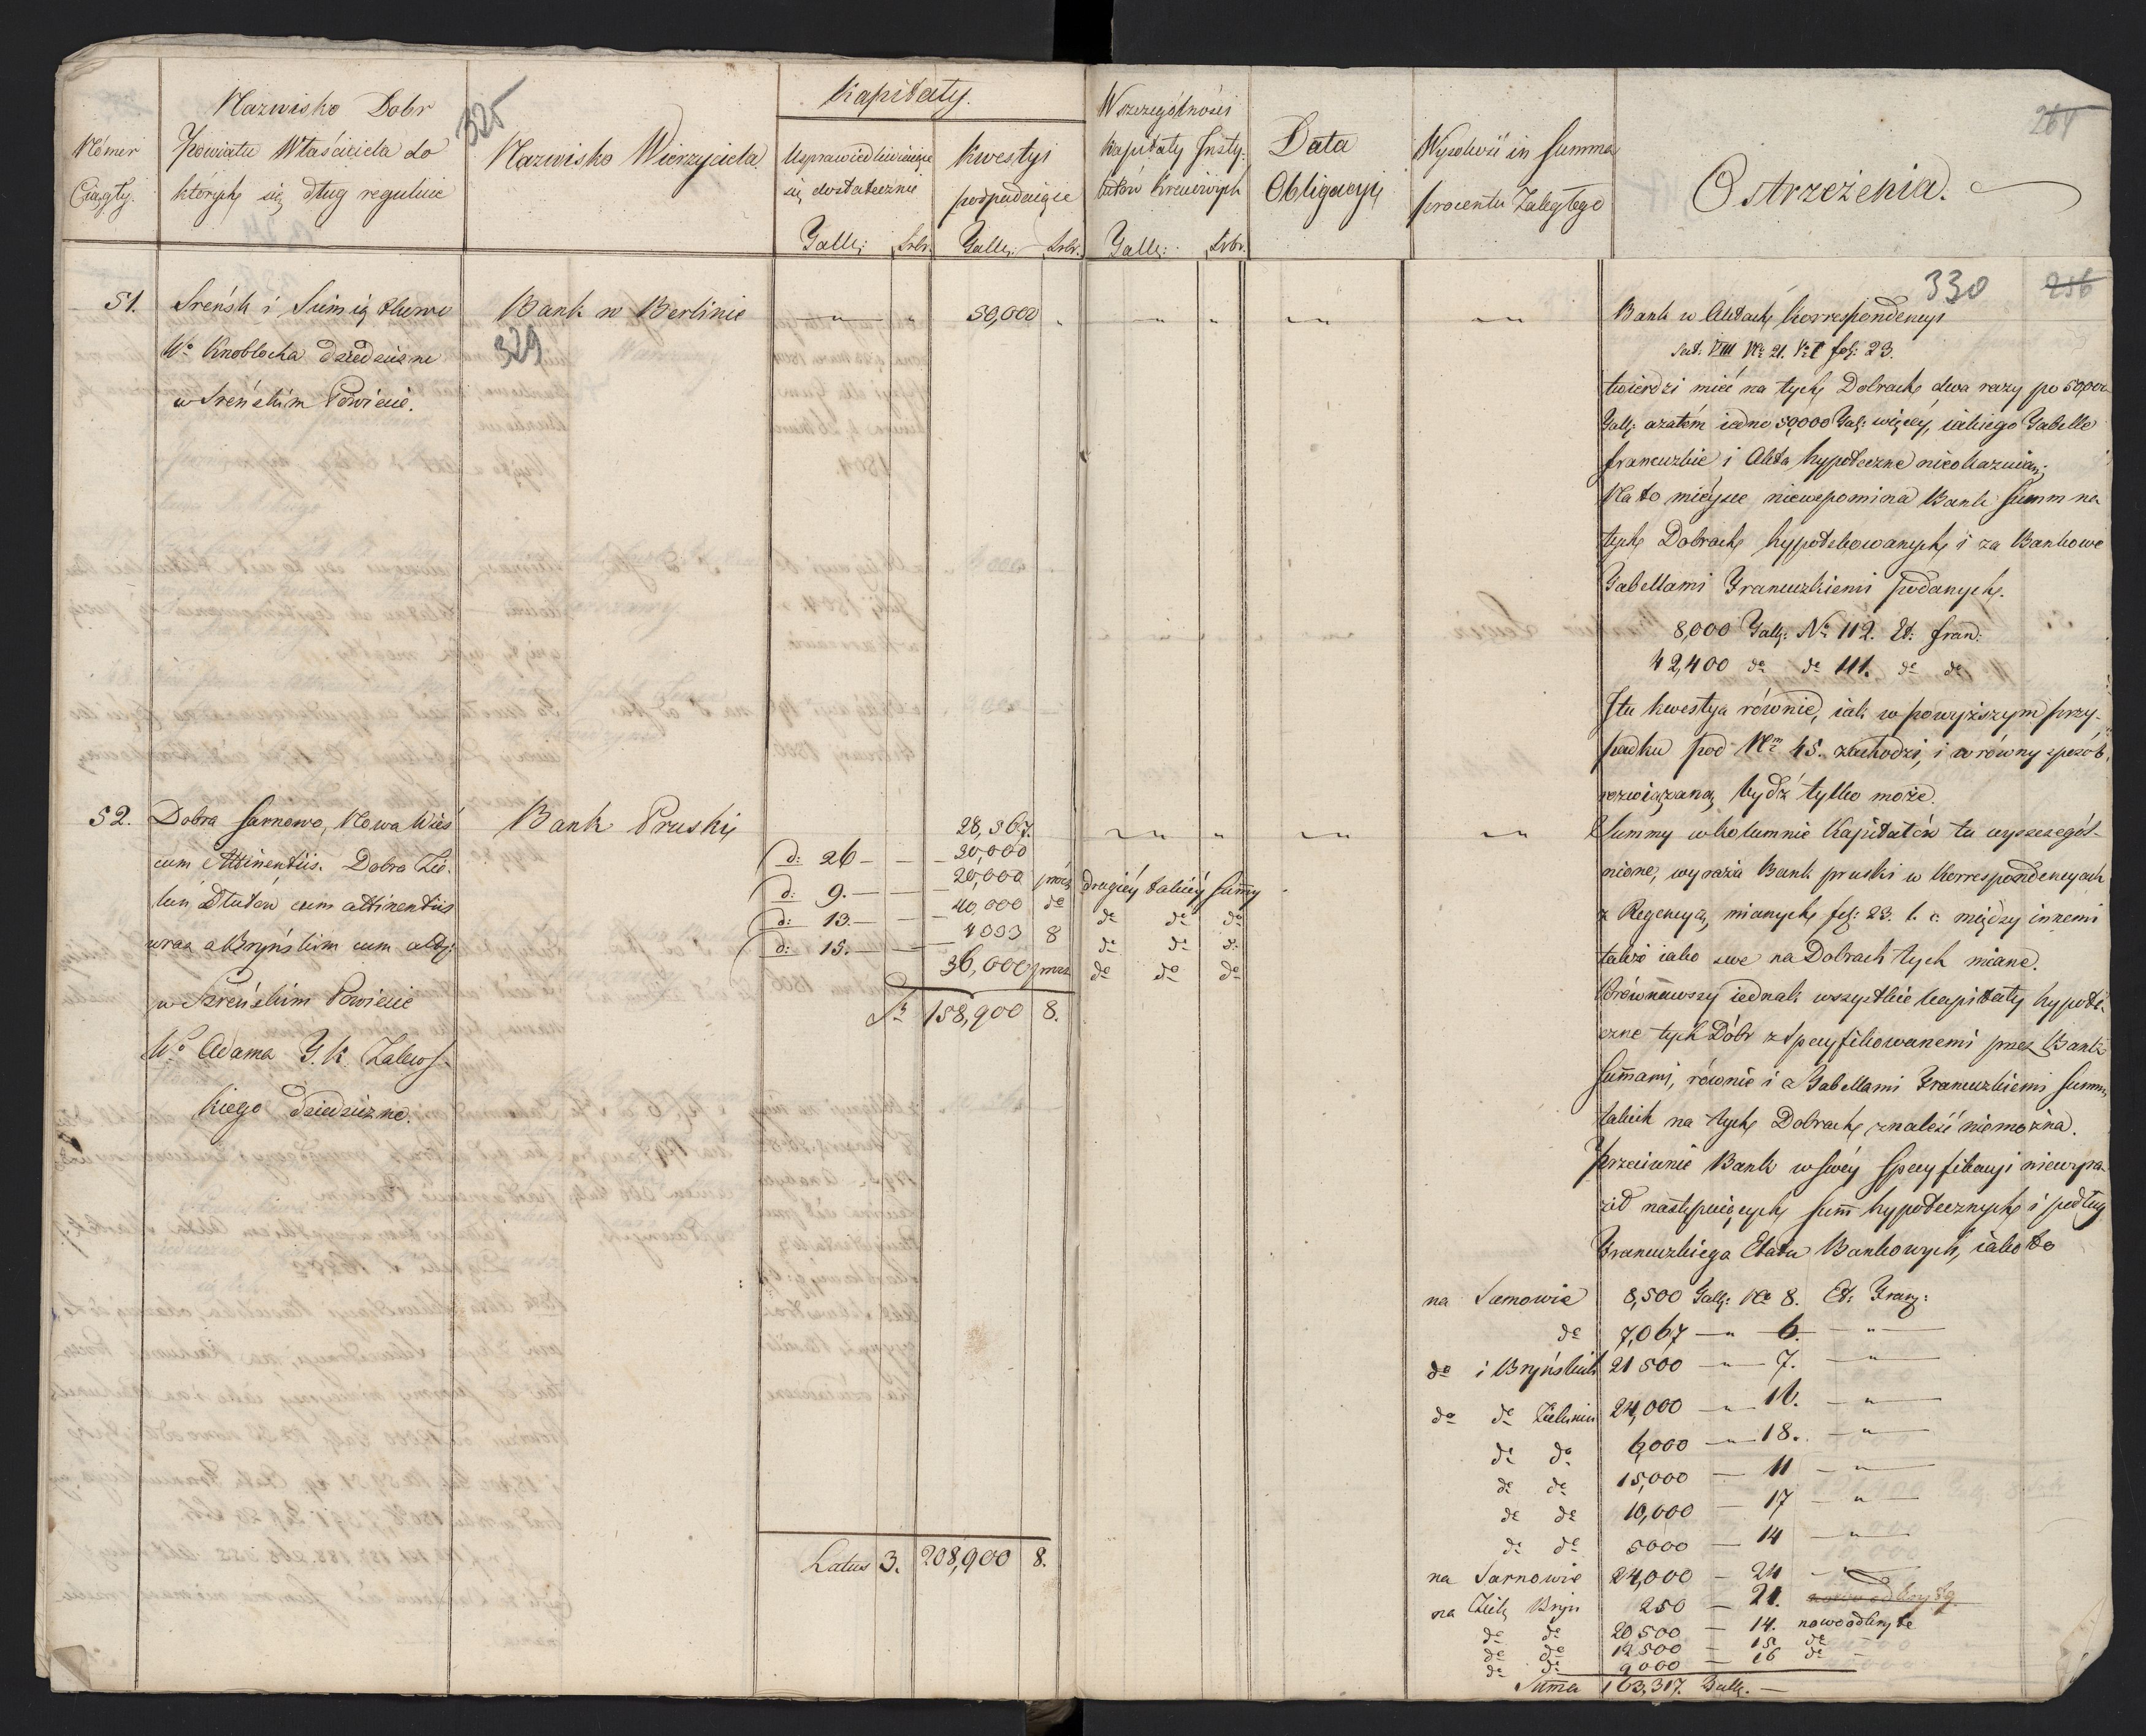 325
264
Numer
Ciągły.
Nazwisko Dobr
Powiatu Właściciela do
których się dług reguluie
Nazwisko Wierzyciela
Kapitały.
Usprawiedliwiaiące
się dostatecznie
Tall: Srbr.
Kwestyi
podpadaiące
Tall: Srbr.
W szczególności
Kapitały Insty-
tutów
Tall: Srbr.
Data
Obligacyi
Wysokość in Summa
procentu Zaległego
Ostrzeżenia.
330
256
51.
Sreńsk i
Wo Knoblocha dziedziczne
w Sreńskim Powiecie.
Bank w Berlinie
329
50,000
Bank w Aktach korrespondencyi
Sect. VIII No 21. V. I fol: 23.
twierdzi mieć na tych Dobrach dwa razy po 50,000
Tall: azatém iedno 50,000 Tal: więcéy, iakiego Tabelle
francuzkie i Akta hypoteczne nieokazuią;
Na to mieysce niewspomina Bank Summ na
tych Dobrach hypotekowanych i za Bankowe
Tabellami Francuzkiemi podanych.
8,000 Tall: No 112. Et: fran:
42,400 do do 111. do do
Ita kwestya równie, iak w powyższym przy-
padku pod Nrm 45. zachodzi, i w równy sposób
rozwiązaną bydź tylko może.
52.
Dobra Sarnowo, Nowa Wieś
cum Attinentiis. Dobra Zie-
luń, Dłutów cum attinentiis
wraz z Bryńskim cum att:
w Szreńskim Powiecie
Wo Adama J. K. Zalews-
kiego dziedziczne.
Bank Pruski
28,567.
d: 26 — 20,000
d: 9. — 20,000 prócz drugiéy takiéy summy
d: 13. — 40,000 do do do do
d: 15. — 4333 8 do do do
36,000 prócz do do do
Sa 158,900 8.
Summy w kolumnie Kapitałów tu wyszczegól-
nione, wyraża Bank pruski w korrespondencyach
z Regencyą mianych fol: 23. l. c. między innemi
także iako swe na Dobrach tych miane.
Porównawszy iednak wszystkie kapitały hypote-
czne tych Dóbr z specyfikowanemi przez Bank
Summami, równie i z Tabellami Francuzkiemi Summ
takich na tych Dobrach znaleźć niemożna.
Przeciwnie Bank w swéy specyfikacyi niewyra-
ził następuiących summ hypotecznych i podług
Francuzkiego Etatu Bankowych, iako to
na Sarnowie 8,500 Tall: No 8. Et: Franz:
do 7,067 — " 6. — " —
do i Bryńskich 21 500 — " 7. — " —
do do Zieluniu 24,000 — " 16. — " —
do do 6,000 — " 18. — " —
do do 15,000 — 11 — " —
do do 10,000 — 17 — " —
do do 5000 — 14 — " —
na Sarnowie 24,000 — 24 —
na Ziel: Bryn 250 — 21. nowoodkryte
do do 20 500 — 14. nowoodkryte
do do 12 500 — 15 do
do do 9 000 — 16 do
Summa 163,317. Tall. —
Latus 3. 208,900 8.